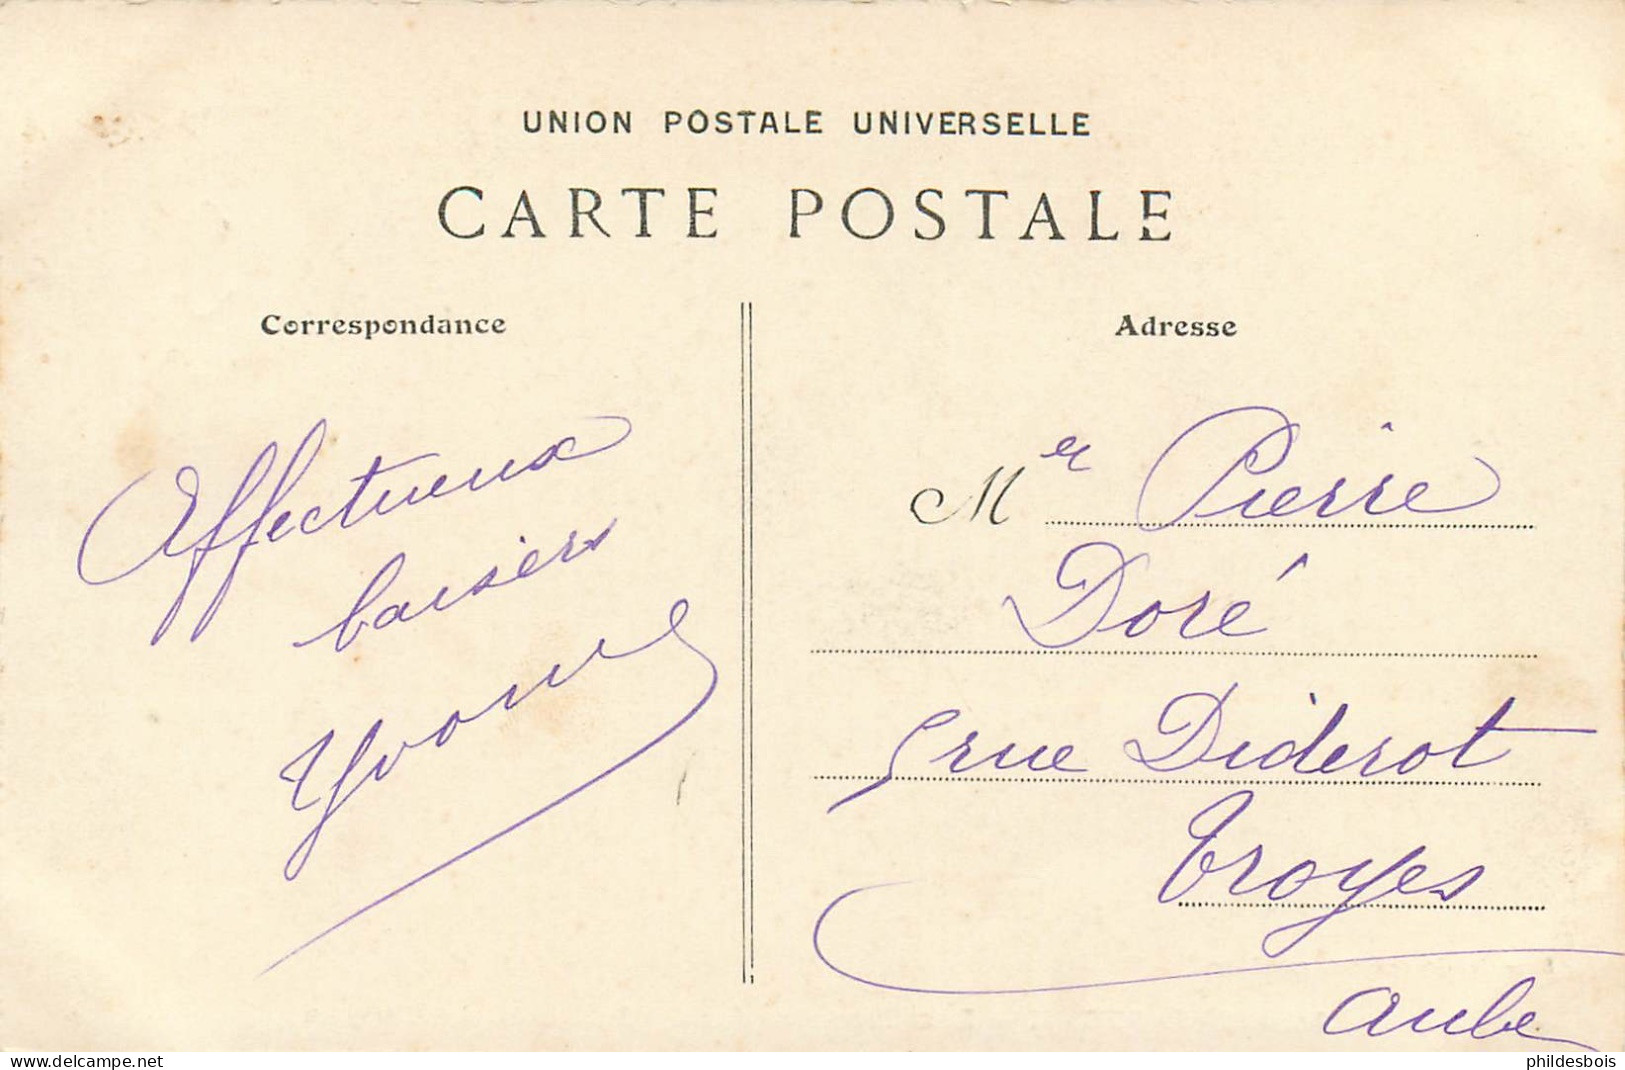 UNION POSTALE UNIVERSELLE
CARTE POSTALE
Correspondance
Affectueux
baisers
Yvonne
Adresse
Mer Pierre
Doré
5 rue Diderot
Troyes
Aube
www.delcampe.net
phildesbois